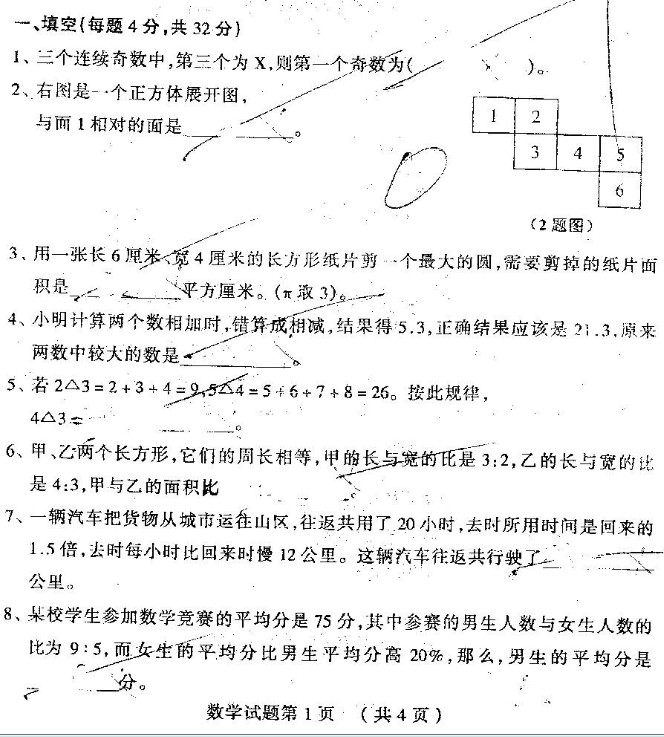 一、填空(每题4分,共32分)
1、三个连续奇数中,第三个为X,则第一个奇数为( )。
2、右图是一个正方体展开图,
与面1相对的面是 。
1 2
3 4 5
6
(2题图)
3、用一张长6厘米、宽4厘米的长方形纸片剪一个最大的圆,需要剪掉的纸片面
积是 平方厘米。(π取3)。
4、小明计算两个数相加时,错算成相减,结果得5.3,正确结果应该是21.3,原来
两数中较大的数是 。
5、若2△3=2+3+4=9,5△4=5+6+7+8=26。按此规律,
4△3= 。
6、甲、乙两个长方形,它们的周长相等,甲的长与宽的比是3:2,乙的长与宽的比
是4:3,甲与乙的面积比 。
7、一辆汽车把货物从城市运往山区,往返共用了20小时,去时所用时间是回来的
1.5倍,去时每小时比回来时慢12公里。这辆汽车往返共行驶了
公里。
8、某校学生参加数学竞赛的平均分是75分,其中参赛的男生人数与女生人数的
比为9:5,而女生的平均分比男生平均分高20%,那么,男生的平均分是
分。
数学试题第1页 (共4页)